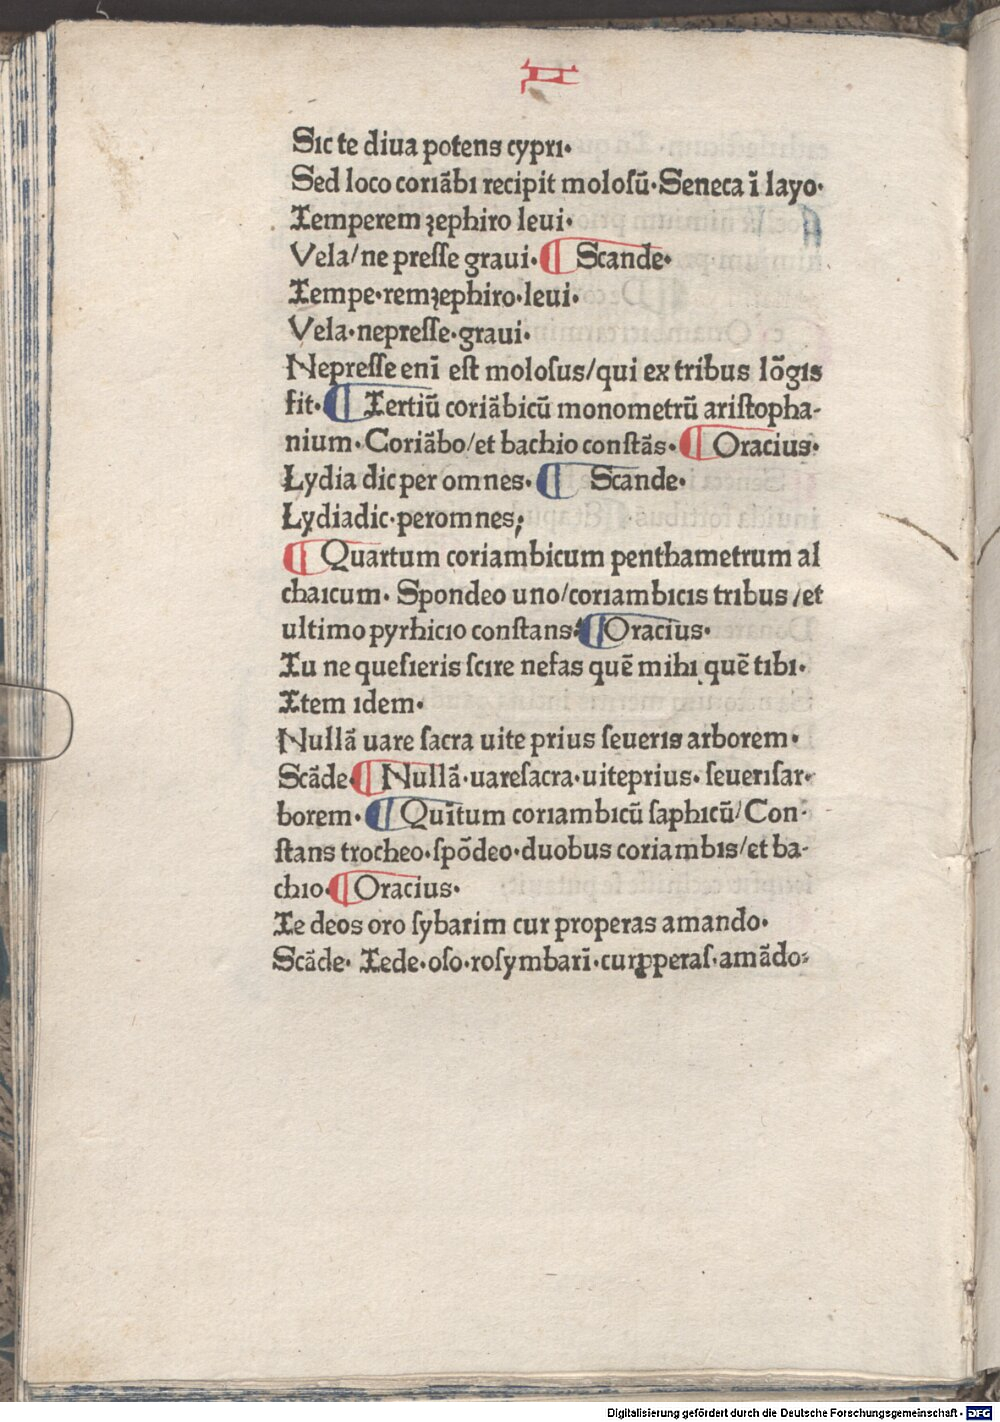 Sic te diua potens cypri·
Sed loco coriãbi recipit moloſũ·Seneca ĩ layo·
Temperem zephiro leui·
Vela/ne preſſe graui· ¶ Scande·
Tempe·remzephiro·leui·
Vela·nepreſſe·graui·
Nepreſſe enĩ eſt moloſus/qui ex tribus lõgis
fit· ¶ Tertiũ coriãbicũ monometrũ ariſtopha-
nium·Coriãbo/et bachio conſtãs· ¶ Oracius·
Lydia dic per omnes· ¶ Scande·
Lydiadic·peromnes;
¶ Quartum coriambicum penthametrum al
chaicum· Spondeo uno/coriambicis tribus/et
ultimo pyrhicio conſtans· ¶ Oracius·
Tu ne queſieris ſcire nefas quẽ mihi quẽ tibi·
Item idem·
Nullã uare ſacra uite prius ſeueris arborem·
Scãde· ¶ Nullã·uareſacra·uiteprius·ſeueriſar-
borem· ¶ Quĩtum coriambicũ ſaphicũ/Con-
ſtans trocheo·ſpõdeo·duobus coriambis/et ba-
chio· ¶ Oracius·
Te deos oro ſybarim cur properas amando·
Scãde· Tede·oſo·roſymbarĩ·curꝓperaſ·amãdo·
Digitalisierung gefördert durch die Deutsche Forschungsgemeinschaft - DFG